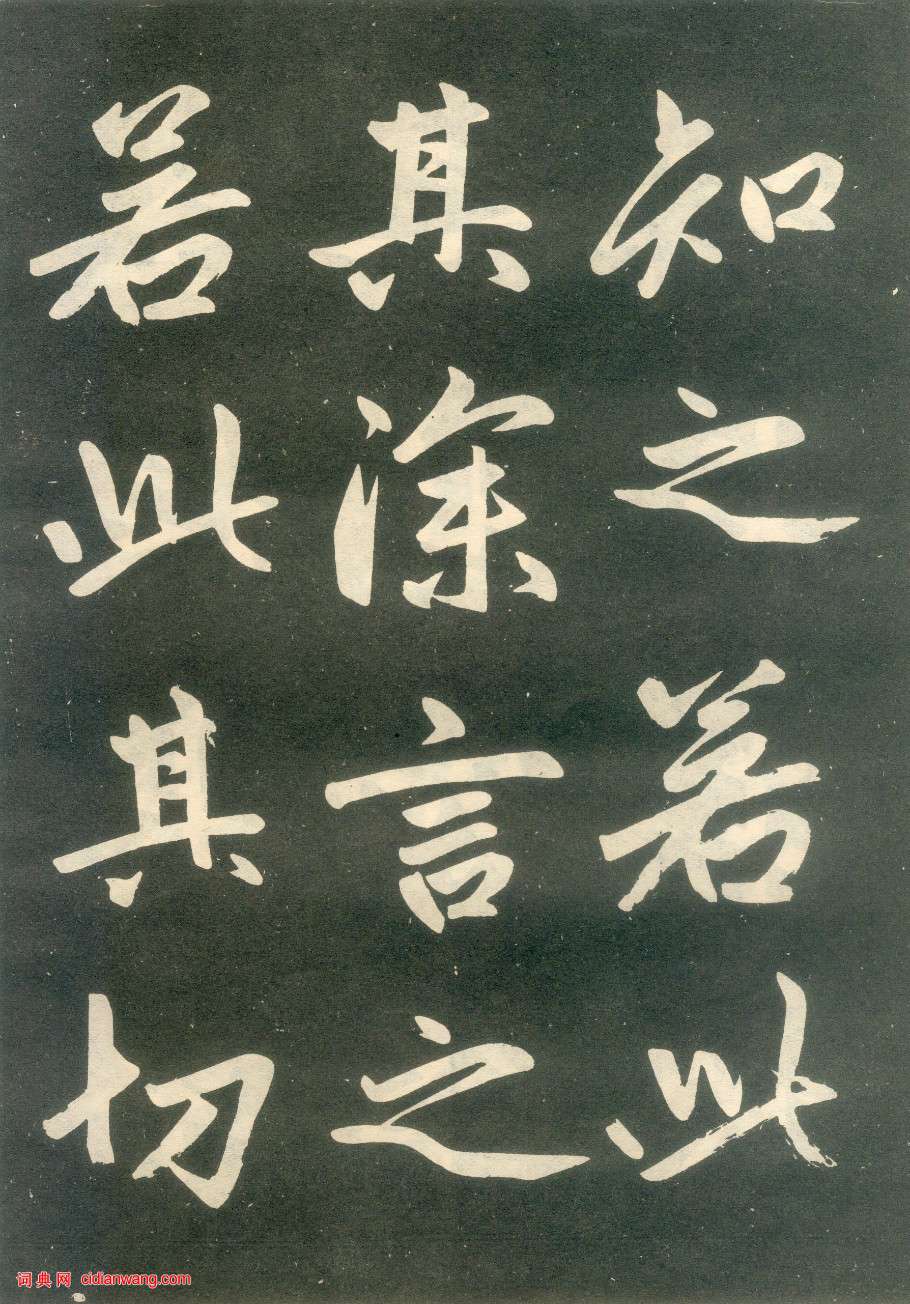 知之若此
其深言之
若此其切
词典网 cidianwang.com